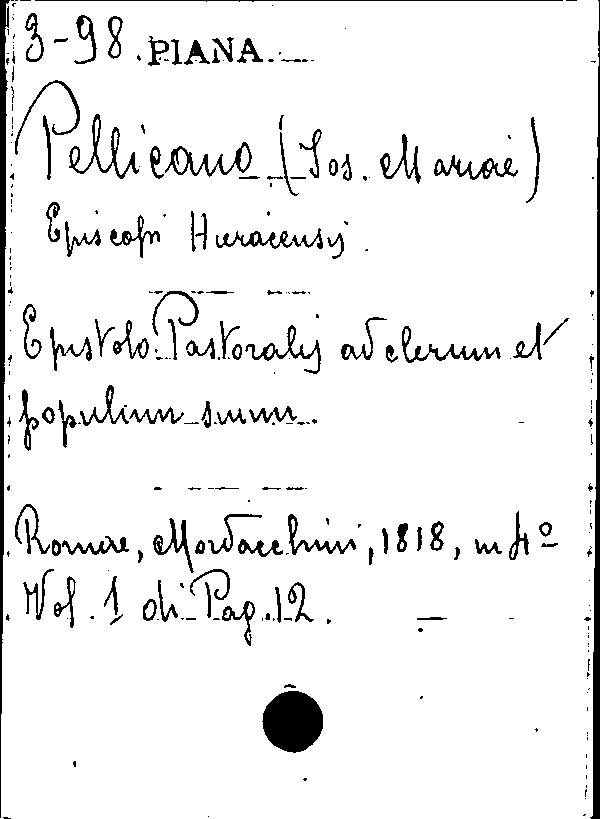 3-98. PIANA
Pellicano (Jos. Mariae)
Episcopi Hieracensis
Epistola Pastoralis ad clerum et
populum suum.
Romae, Mordacchini, 1818, in 4º
Vol. 1 di Pag. 12.